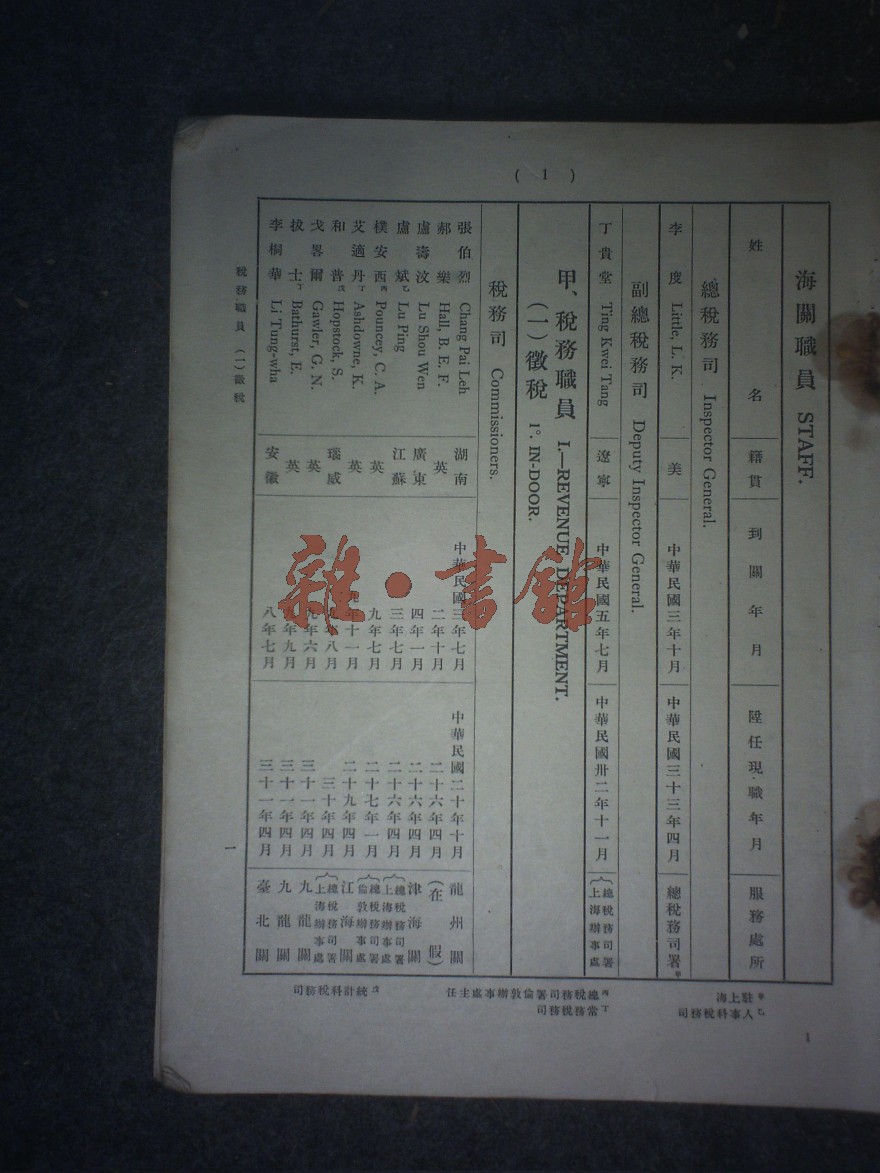 ( 1 )
海關職員 STAFF.
姓 名 籍貫 到關年月 陞任現職年月 服務處所
總稅務司 Inspector General.
李度 Little, L. K. 美 中華民國三年十月 中華民國三十三年四月 總稅務司署甲
副總稅務司 Deputy Inspector General.
丁貴堂 Ting Kwei Tang 遼寧 中華民國五年七月 中華民國卅二年十一月 {總稅務司署上海辦事處
甲、稅務職員 I.—REVENUE DEPARTMENT.
(一)徵稅 1°. IN-DOOR.
稅務司 Commissioners.
張伯烈 Chang Pai Leh 湖南 中華民國三年七月 中華民國二十年十月 龍州關
郝樂 Hall, B. E. F. 英 二年十月 二十六年四月 (在假)
盧濤汶 Lu Shou Wen 廣東 四年一月 二十六年四月 津海關
盧斌乙 Lu Ping 江蘇 三年七月 二十六年四月 {總稅務司署上海辦事處
樸安西丙 Pouncey, C. A. 英 九年七月 二十七年一月 {總稅務司署倫敦辦事處
艾適丹丁 Ashdowne, K. 英 年十一月 二十九年四月 江海關
和普戊 Hopstock, S. 瑙威 年八月 三十年四月 {總稅務司署上海辦事處
戈畧爾 Gawler, G. N. 英 九年六月 三十一年四月 九龍關
拔士丁 Bathurst, E. 英 九年九月 三十一年四月 九龍關
李桐華 Li Tung-wha 安徽 八年七月 三十一年四月 臺北關
甲 駐上海
乙 人事科稅務司
丙 總稅務司署倫敦辦事處主任
丁 常務稅務司
戊 統計科稅務司
稅務職員 (1)徵稅
一
1
雜·書館